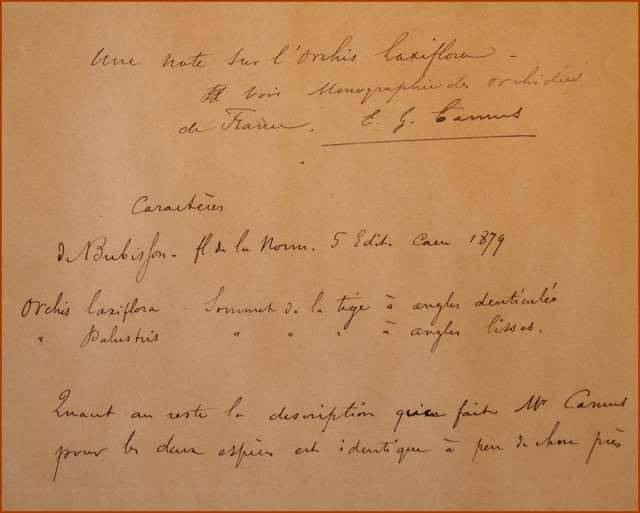 Une note sur l'Orchis laxiflora -
Voir Monographie des Orchidées
de France. E. G. Camus
Caractères
De Brébisson - fl de la Norm. 5 Edit. Caen 1879
Orchis laxiflora - Sommet de la tige à angles denticulés
" Palustris " " " à angles lisses.
Quant au reste la description que fait Mr Camus
pour les deux espèces est identique à peu de chose près